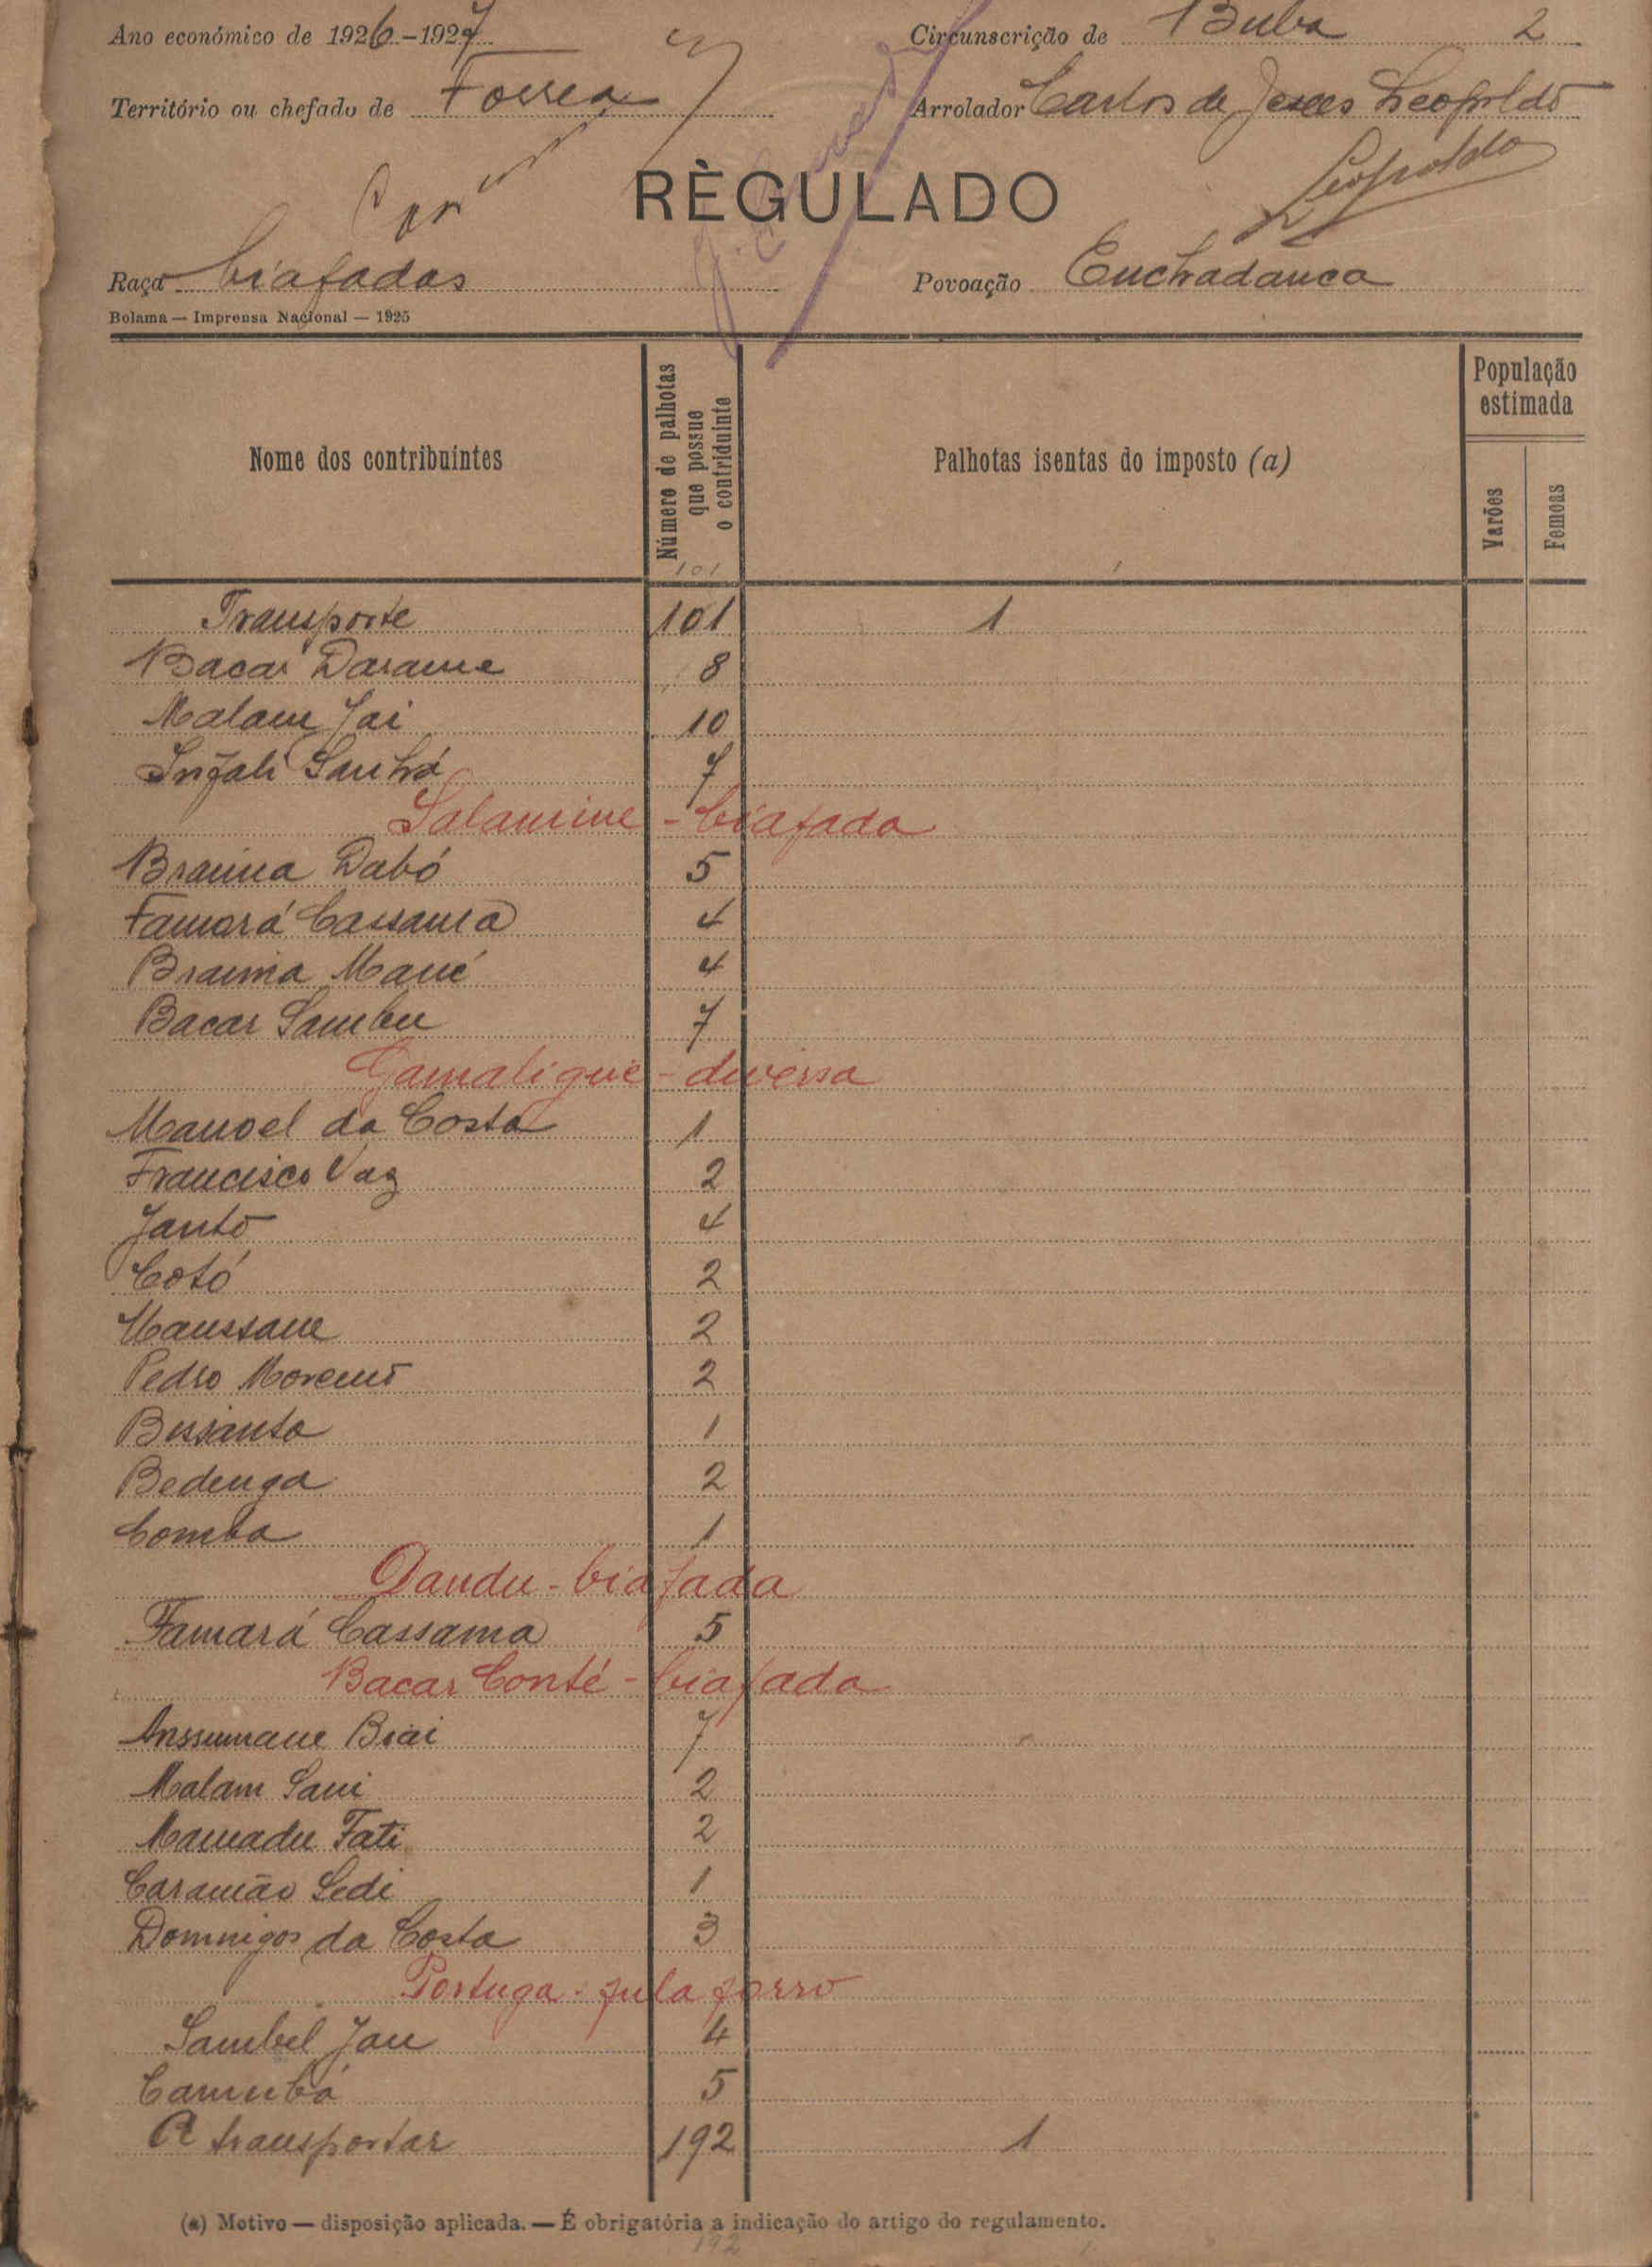 Ano económico de 1926-1927 Circunscrição de Buba 2
Território ou chefado de Forrea Arrolador Carlos de Jesus Leopoldo
Leopoldo
RÈGULADO
Raça biafadas Povoação Enchadanca
Bolama — Imprensa Nacional — 1925
Nome dos contribuintes Número de palhotas que possue o contriduinte Palhotas isentas do imposto (a) População estimada
Varões Femeas
101
Transporte 101 1
Bacar Darame 8
Malam Jai 10
Injali Sanhá 7
Salamine - biafada
Braima Dabó 5
Famará Cassama 4
Braima Mané 4
Bacar Sambu 7
Gamaligue - diversa
Manoel da Costa 1
Francisco Vaz 2
Janto 4
Cotó 2
Maussane 2
Pedro Moreno 2
Bussanto 1
Bedenga 2
Comba 1
Dandu - biafada
Famará Cassama 5
Bacar Conté - biafada
Anssumane Biai 7
Malam Sani 2
Mamadu Fati 2
Caramão Sedi 1
Domingos da Costa 3
Portuga - fula forro
Sambel Jau 4
Camubá 5
A transportar 192 1
(a) Motivo — disposição aplicada. — É obrigatória a indicação do artigo do regulamento.
192